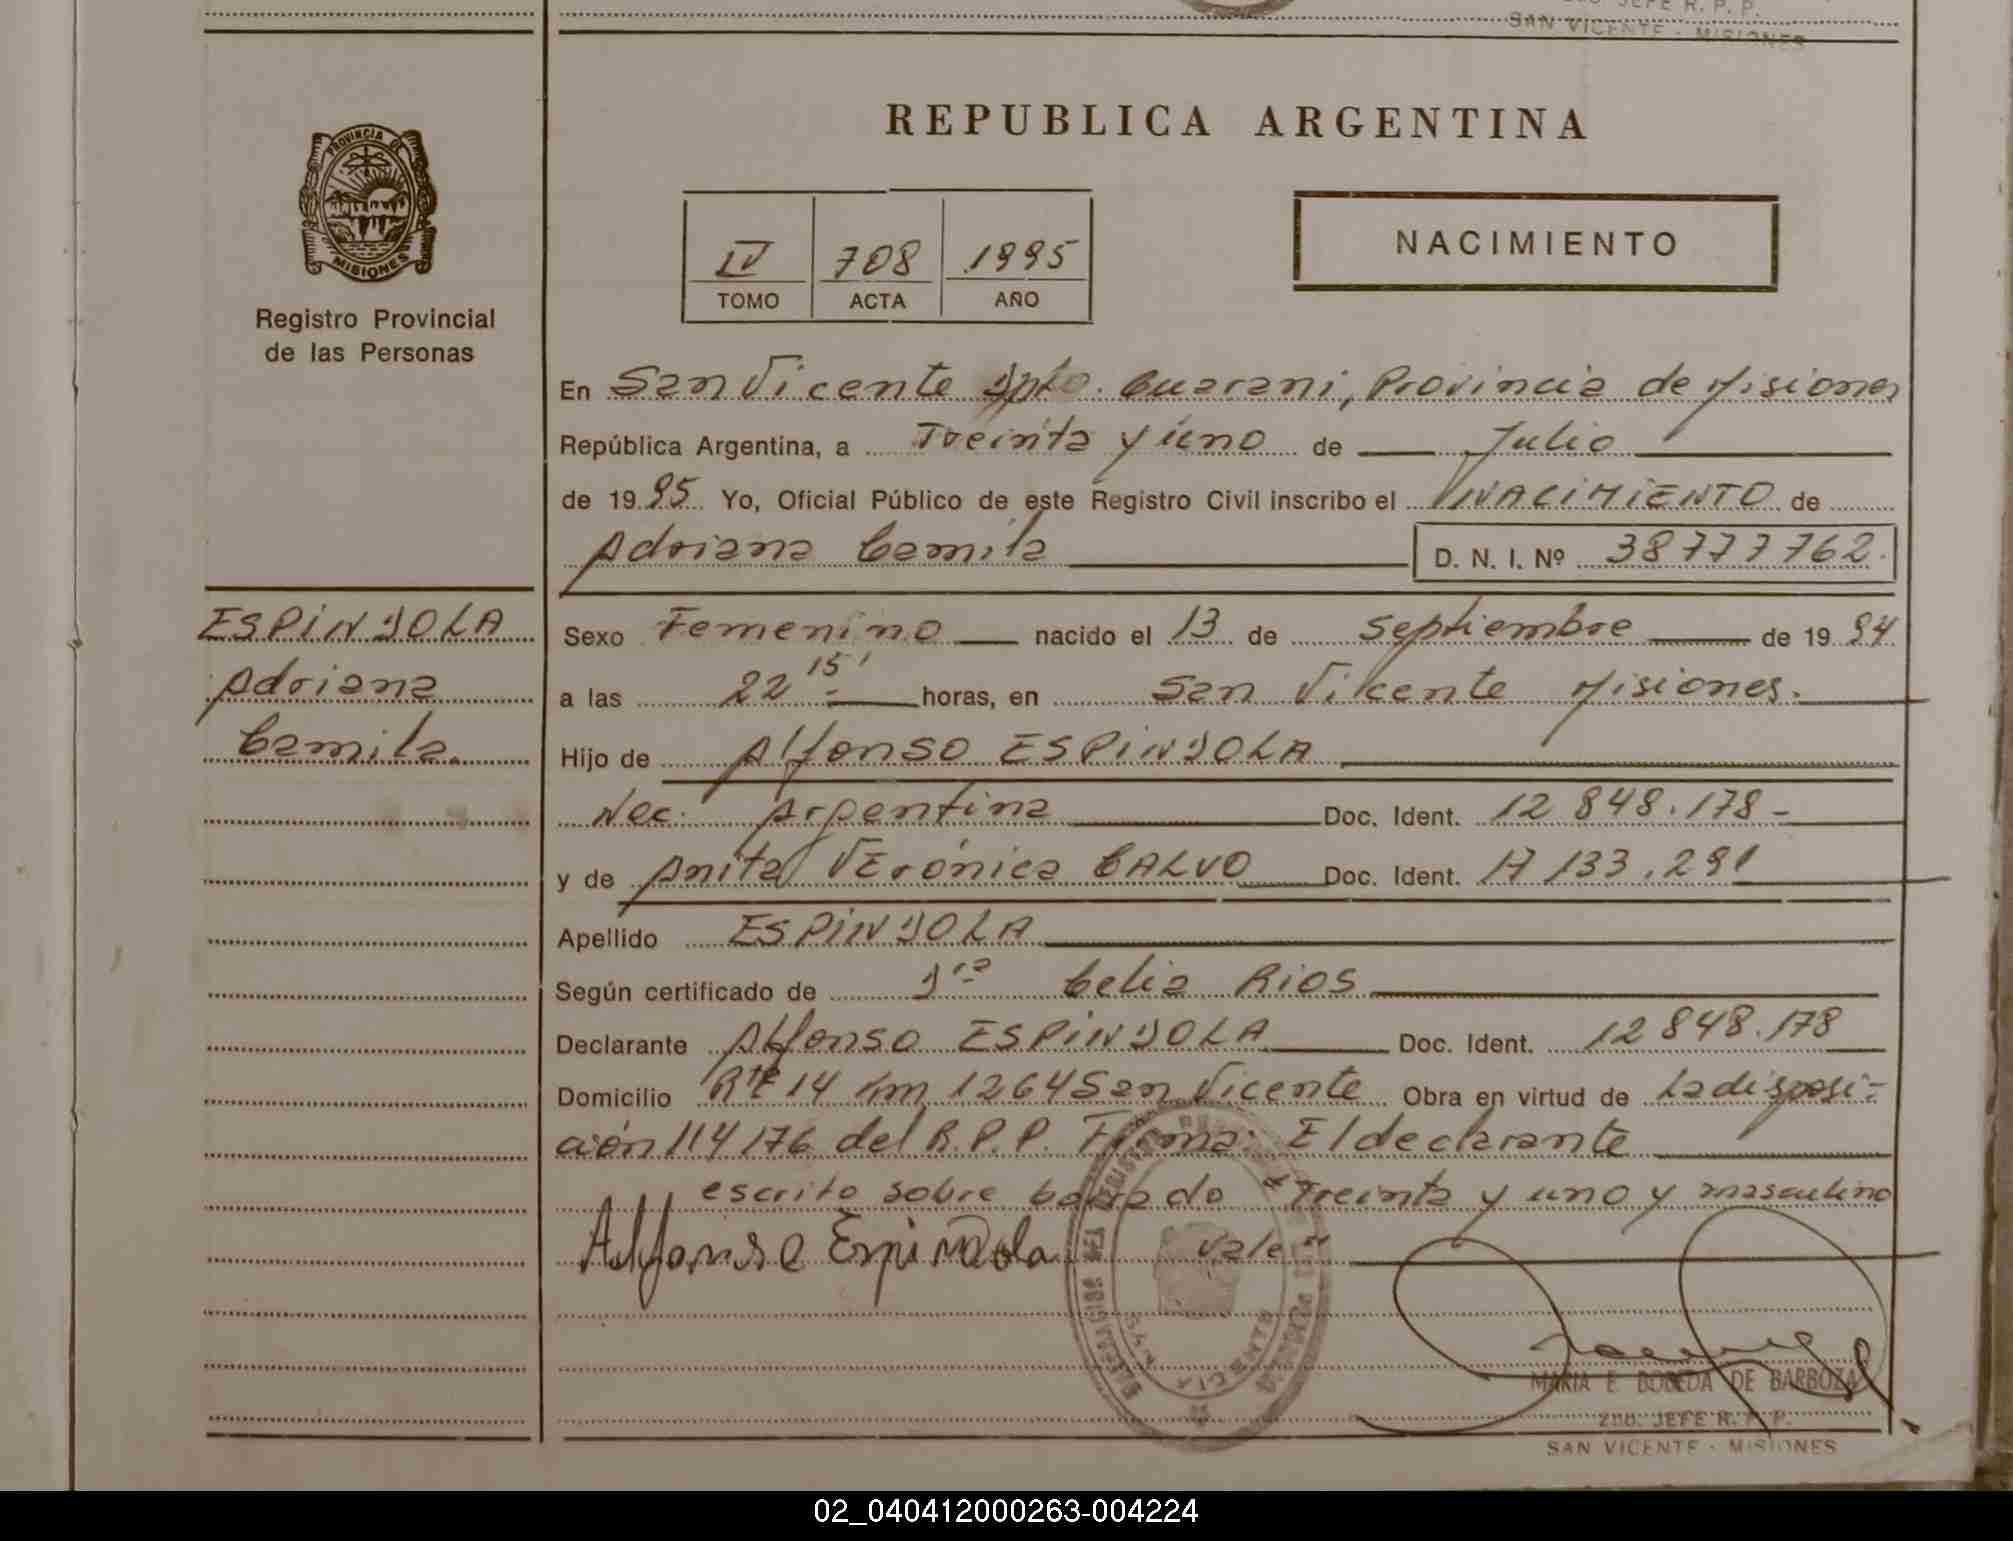 SAN VICENTE - MISIONES
PROVINCIA DE
MISIONES
Registro Provincial
de las Personas
REPUBLICA ARGENTINA
IV 708 1995
TOMO ACTA AÑO
NACIMIENTO
En San Vicente Dpto. Guarani, Provincia de Misiones
República Argentina, a Treinta y uno de Julio
de 1995 Yo, Oficial Público de este Registro Civil inscribo el NACIMIENTO de
Adriana Camila D. N. I. Nº 38777762.
ESPINDOLA
Adriana
Camila.
Sexo Femenino nacido el 13 de Septiembre de 1994
a las 22 15' horas, en San Vicente Misiones.
Hijo de Alfonso ESPINDOLA
Nac. Argentina Doc. Ident. 12 848.178-
y de Anita VErónica CALVO Doc. Ident. 17 133.291
Apellido ESPINDOLA
Según certificado de Dra Celia RIOS
Declarante Alfonso ESPINDOLA Doc. Ident. 12 848.178
Domicilio Rta 14 Km 1264 San Vicente Obra en virtud de La disposi-
ción 114/76 del R.P.P. Firma: El declarante
escrito sobre borrado "Treinta y uno y masculino
Vale"
Alfonso Espindola
SAN VICENTE
MARIA E. BOBEDA DE BARBOZA
2do. JEFE R. P. P.
SAN VICENTE - MISIONES
02_040412000263-004224